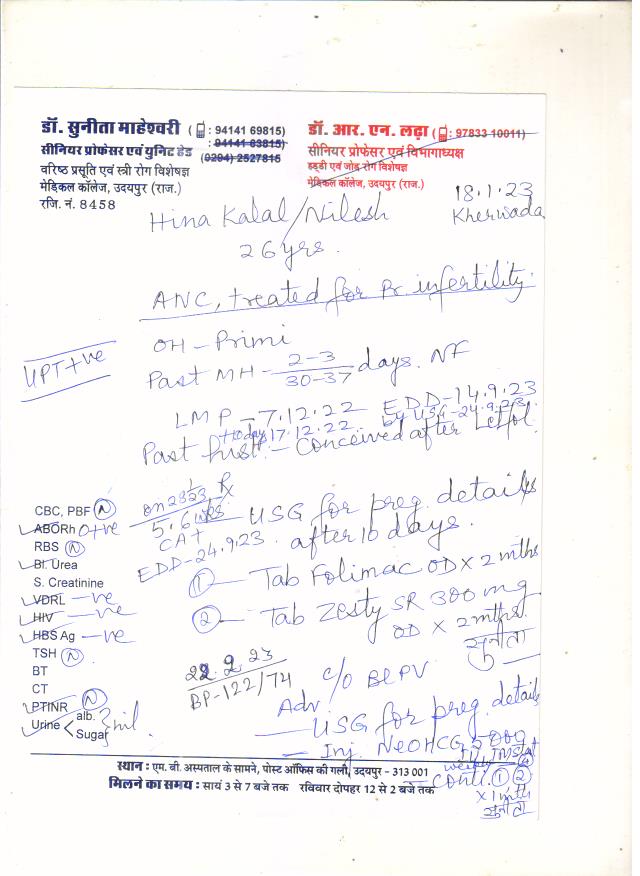 डॉ. सुनीता माहेश्वरी ( : 94141 69815)
: 94141 63815)
सीनियर प्रोफेसर एवं युनिट हेड (0294) 2527815
वरिष्ठ प्रसूति एवं स्त्री रोग विशेषज्ञ
मेडिकल कॉलेज, उदयपुर (राज.)
रजि. नं. 8458
डॉ. आर. एन. लढ़ा ( : 97833 10011)
सीनियर प्रोफेसर एवं विभागाध्यक्ष
हड्डी एवं जोड़ रोग विशेषज्ञ
मेडिकल कॉलेज, उदयपुर (राज.)
18.1.23
Kherwada
Hina Kalal/Nilesh
26yrs.
ANC, treated for Pr infertility.
UPT+ve
OH - Primi
Past MH - 2-3/30-37 days. NF
LMP - 7.12.22 EDD - 14.9.23
17.12.22 by USG - 24.9.23
Past hist. - Conceived after Letfol.
on 28.1.23 Rx
5.6 wks
CA+
EDD-24.9.23.
— USG for preg. details
after 10 days.
① — Tab Folimac OD X 2 mths
② — Tab Zesty SR 300 mg
OD X 2 mths.
सुनीता
CBC, PBF N
ABORh O+ve
RBS N
Bl. Urea
S. Creatinine
VDRL -ve
HIV -ve
HBS Ag -ve
TSH N
BT
CT
PTINR N
Urine alb. Sugar nil
22.2.23
BP-122/74
c/o BLPV
Adv
— USG for preg. details
— Inj. NeOHCG 5000
weekly
— Conti. ① ②
X 1 mth
सुनीता
स्थान : एम. बी. अस्पताल के सामने, पोस्ट ऑफिस की गली, उदयपुर - 313 001
मिलने का समय : सायं 3 से 7 बजे तक रविवार दोपहर 12 से 2 बजे तक